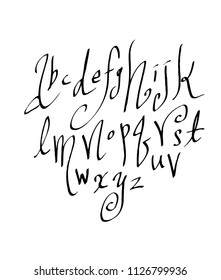 abcdefghijk
lmnopqrst
uv
wxyz
shutterstock.com · 1126799936